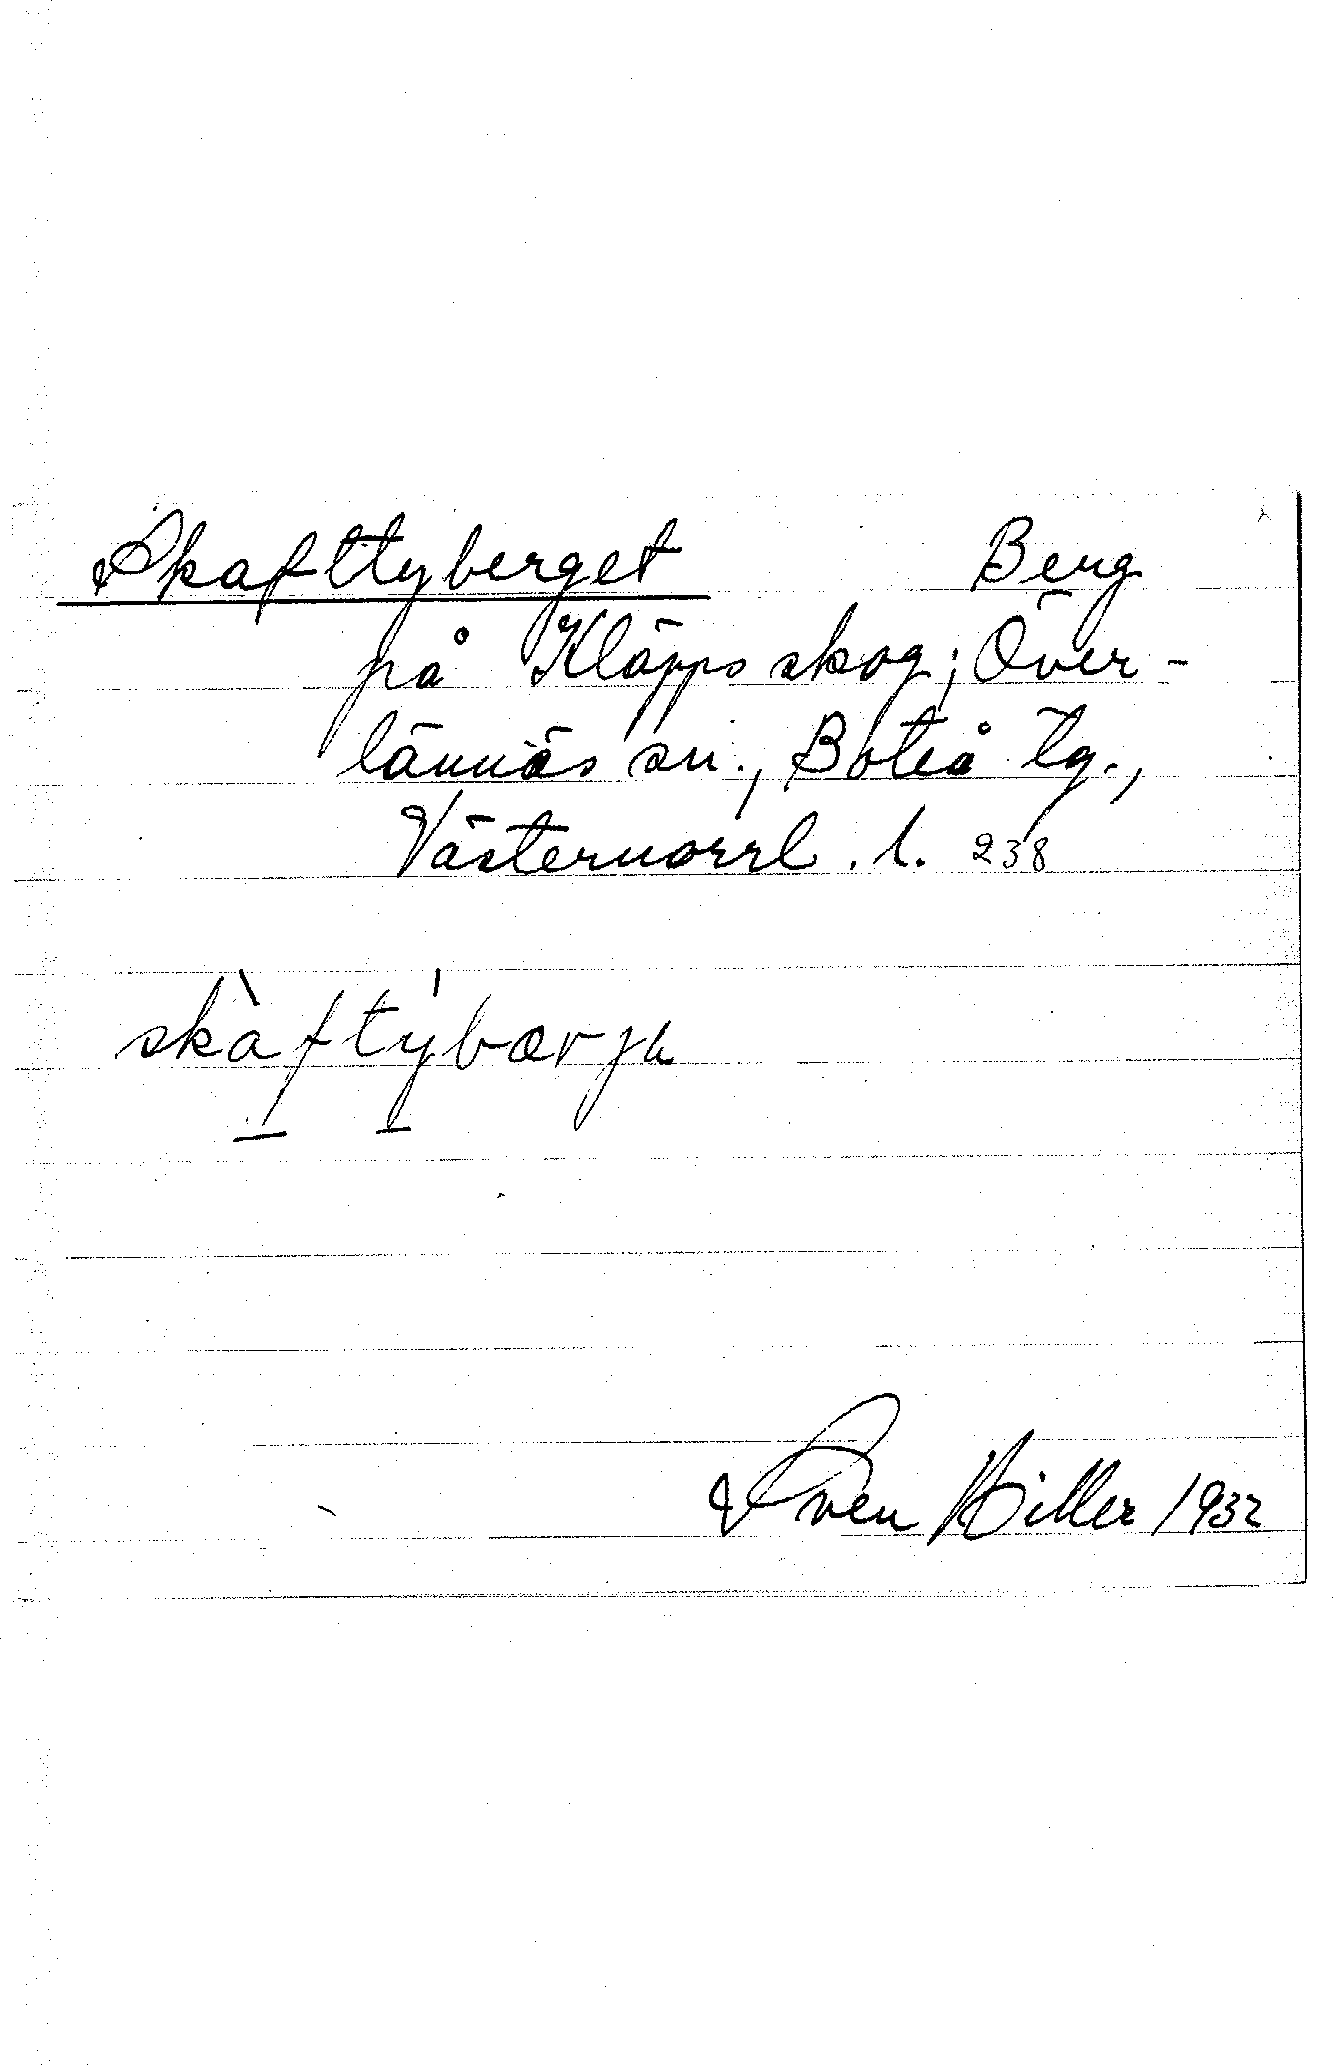 Skafttyberget Berg
på Kläpps skog; Över-
lännäs sn., Boteå tg.,
Västernorrl. l. 238
skàftýbærja
Sven Hiller 1932